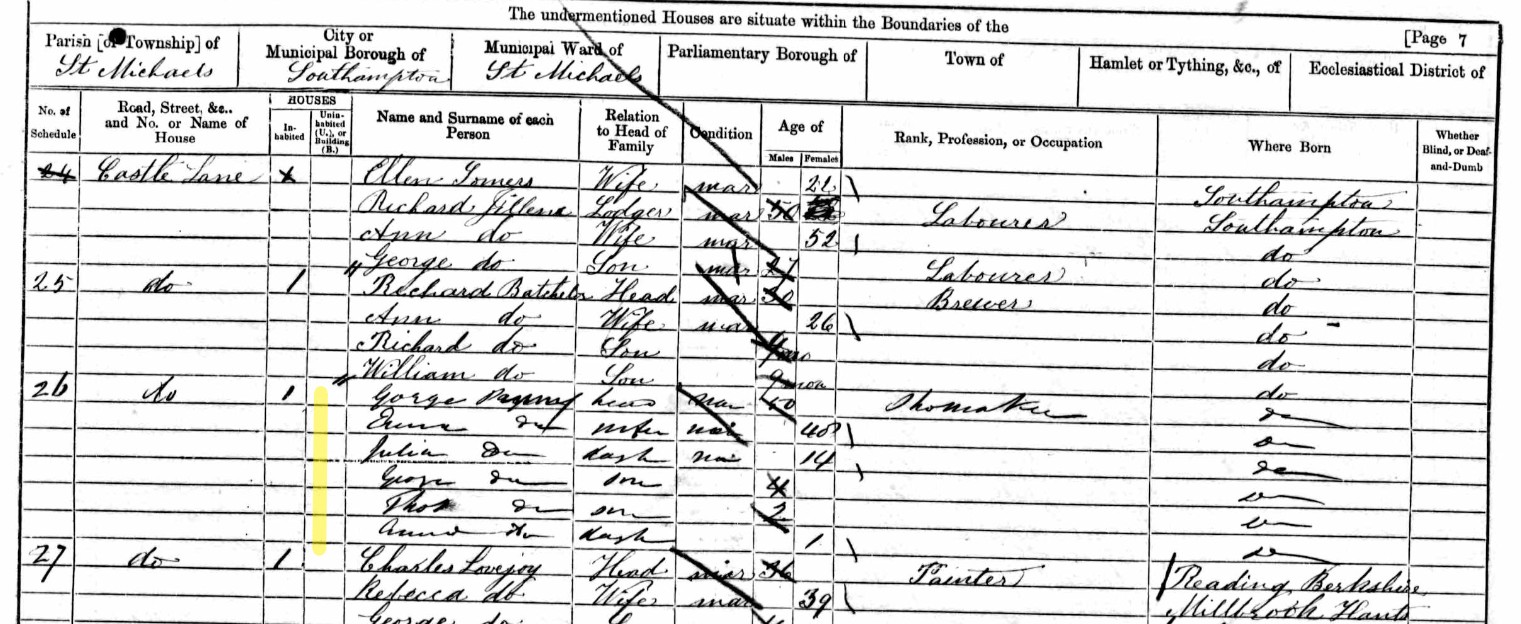 The undermentioned Houses are situate within the Boundaries of the
[Page 7
Parish [or Township] of
St Michaels
City or Municipal Borough of
Southampton
Municipal Ward of
St Michaels
Parliamentary Borough of
Town of
Hamlet or Tything, &c., of
Ecclesiastical District of
No. of Schedule
Road, Street, &c., and No. or Name of House
HOUSES
Inhabited
Uninhabited (U.), or Building (B.)
Name and Surname of each Person
Relation to Head of Family
Condition
Age of
Males
Females
Rank, Profession, or Occupation
Where Born
Whether Blind, or Deaf-and-Dumb
24 Castle Lane Ellen Somers Wife mar 22 Southampton
Richard Lodger mar 50 Labourer Southampton
Ann do Wife mar 52 do
George do Son mar 27 Labourer do
25 do 1 Richard Batchelor Head mar 30 Brewer do
Ann do Wife mar 26 do
Richard do Son do
William do Son 9 mos do
26 do 1 Gorge head mar 40 Shomaker do
Emma do wife mar 40 do
Julia do daugh 14 do
George do son 4 do
Thos do son 2 do
do daugh 1 do
27 do 1 Charles Lovejoy Head mar 36 Painter Reading Berkshire
Rebecca do Wife mar 39 Millbrook Hants
George do